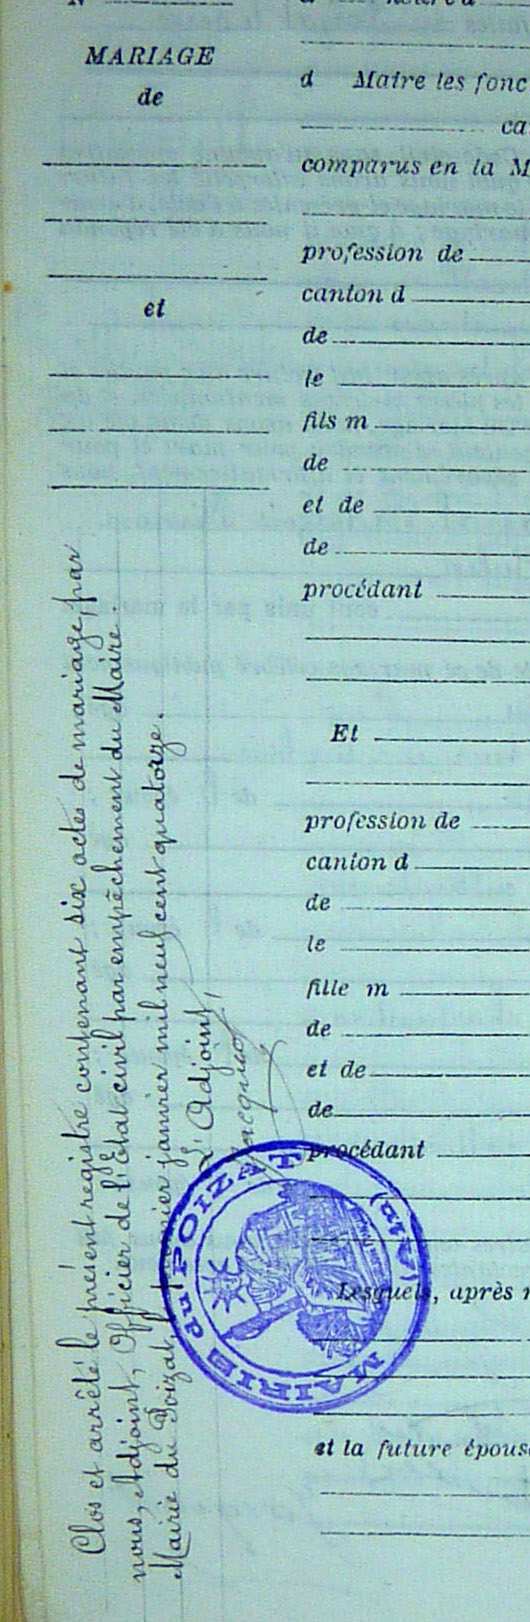 MARIAGE
de
et
d Maire les fonc
comparus en la M
profession de
canton d
de
le
fils m
de
et de
de
procédant
Et
profession de
canton d
de
le
fille m
de
et de
de
procédant
Lesquels, après
et la future épouse
Clos et arrêté le présent registre contenant six actes de mariage, par
nous, Adjoint, Officier de l'Etat civil par empêchement du Maire,
Mairie du Poizat, le premier janvier mil neuf cent quatorze.
L'Adjoint,
MAIRIE du POIZAT (Ain)